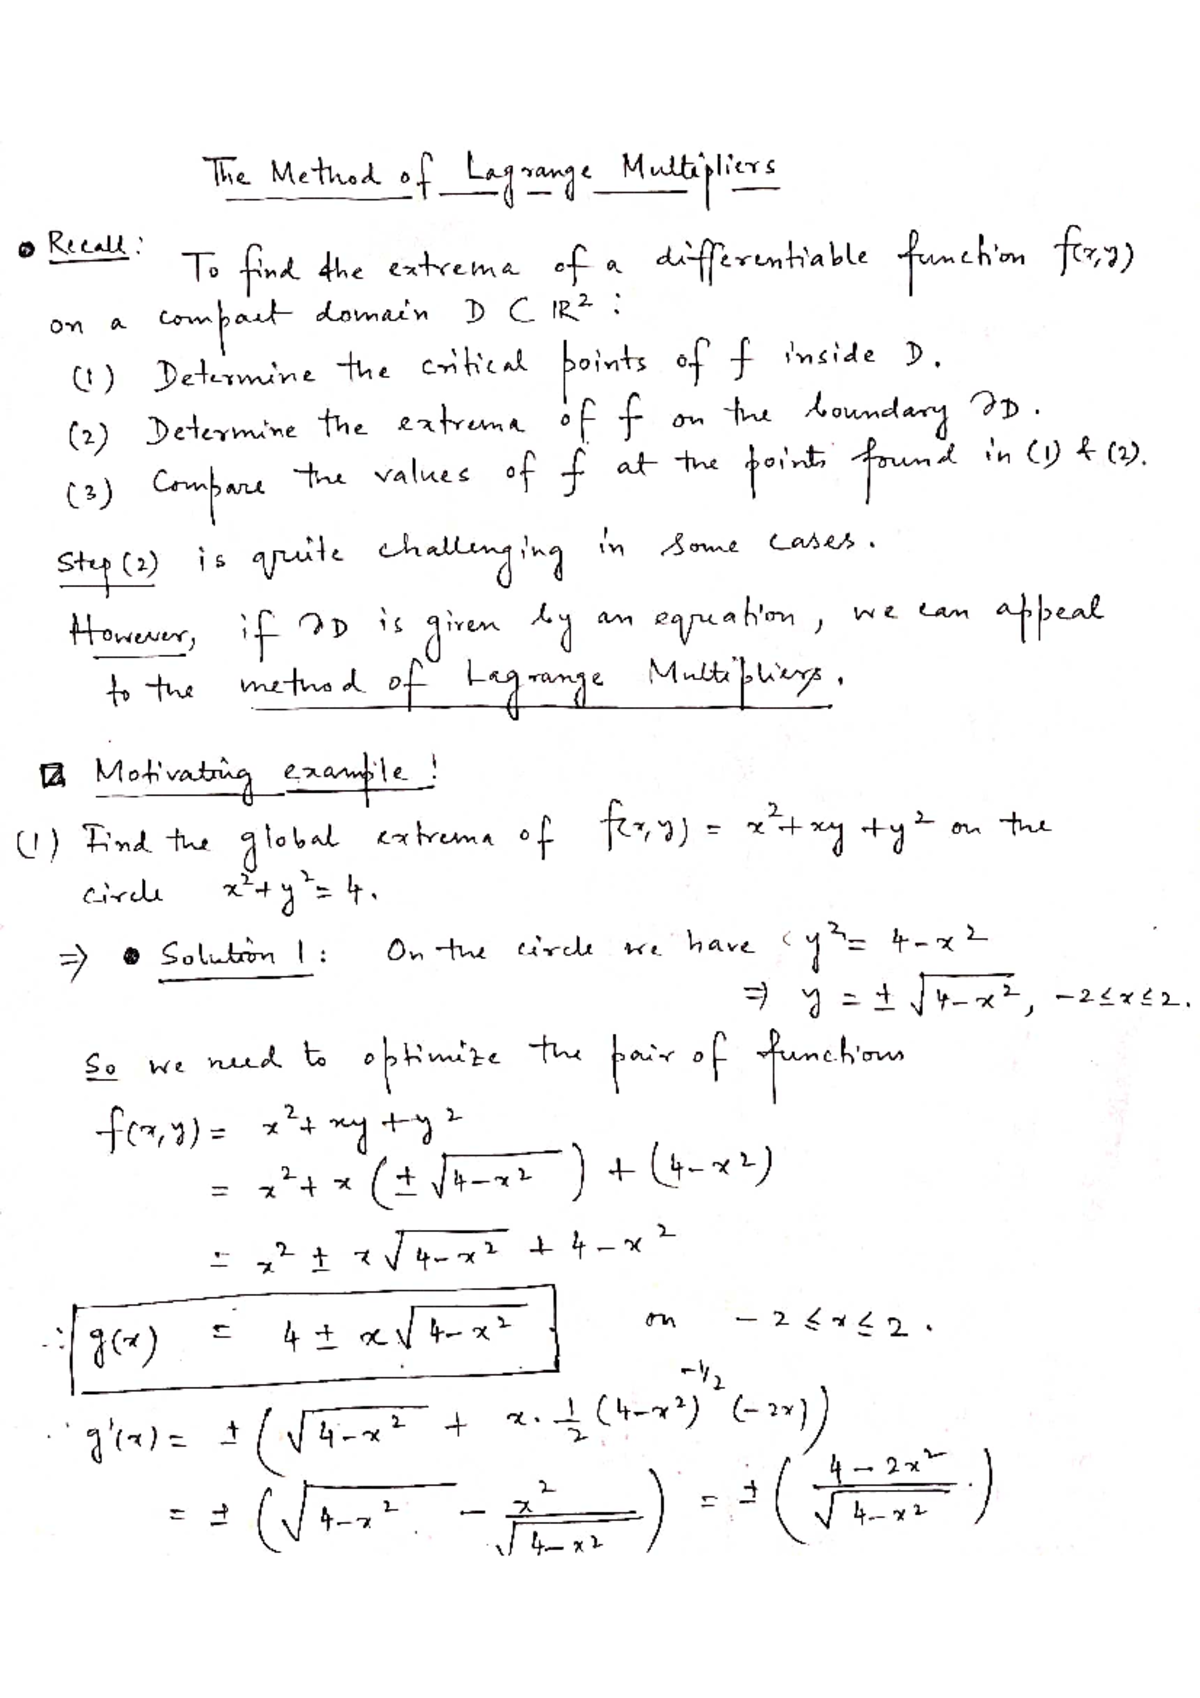 The Method of Lagrange Multipliers
• Recall: To find the extrema of a differentiable function f(x,y)
on a compact domain D ⊂ ℝ² :
(1) Determine the critical points of f inside D.
(2) Determine the extrema of f on the boundary ∂D.
(3) Compare the values of f at the points found in (1) & (2).
Step (2) is quite challenging in some cases.
However, if ∂D is given by an equation, we can appeal
to the method of Lagrange Multipliers.
Motivating example:
(1) Find the global extrema of f(x,y) = x² + xy + y² on the
circle x² + y² = 4.
⇒ • Solution 1: On the circle we have y² = 4 - x²
⇒ y = ± √(4-x²), -2 ≤ x ≤ 2.
So we need to optimize the pair of functions
f(x,y) = x² + xy + y²
= x² + x (± √(4-x²)) + (4-x²)
= x² ± x √(4-x²) + 4 - x²
∴ g(x) = 4 ± x √(4-x²) on -2 ≤ x ≤ 2.
g'(x) = ± (√(4-x²) + x · 1/2 (4-x²)^(-1/2) (-2x))
= ± (√(4-x²) - x²/√(4-x²)) = ± ((4-2x²)/√(4-x²))